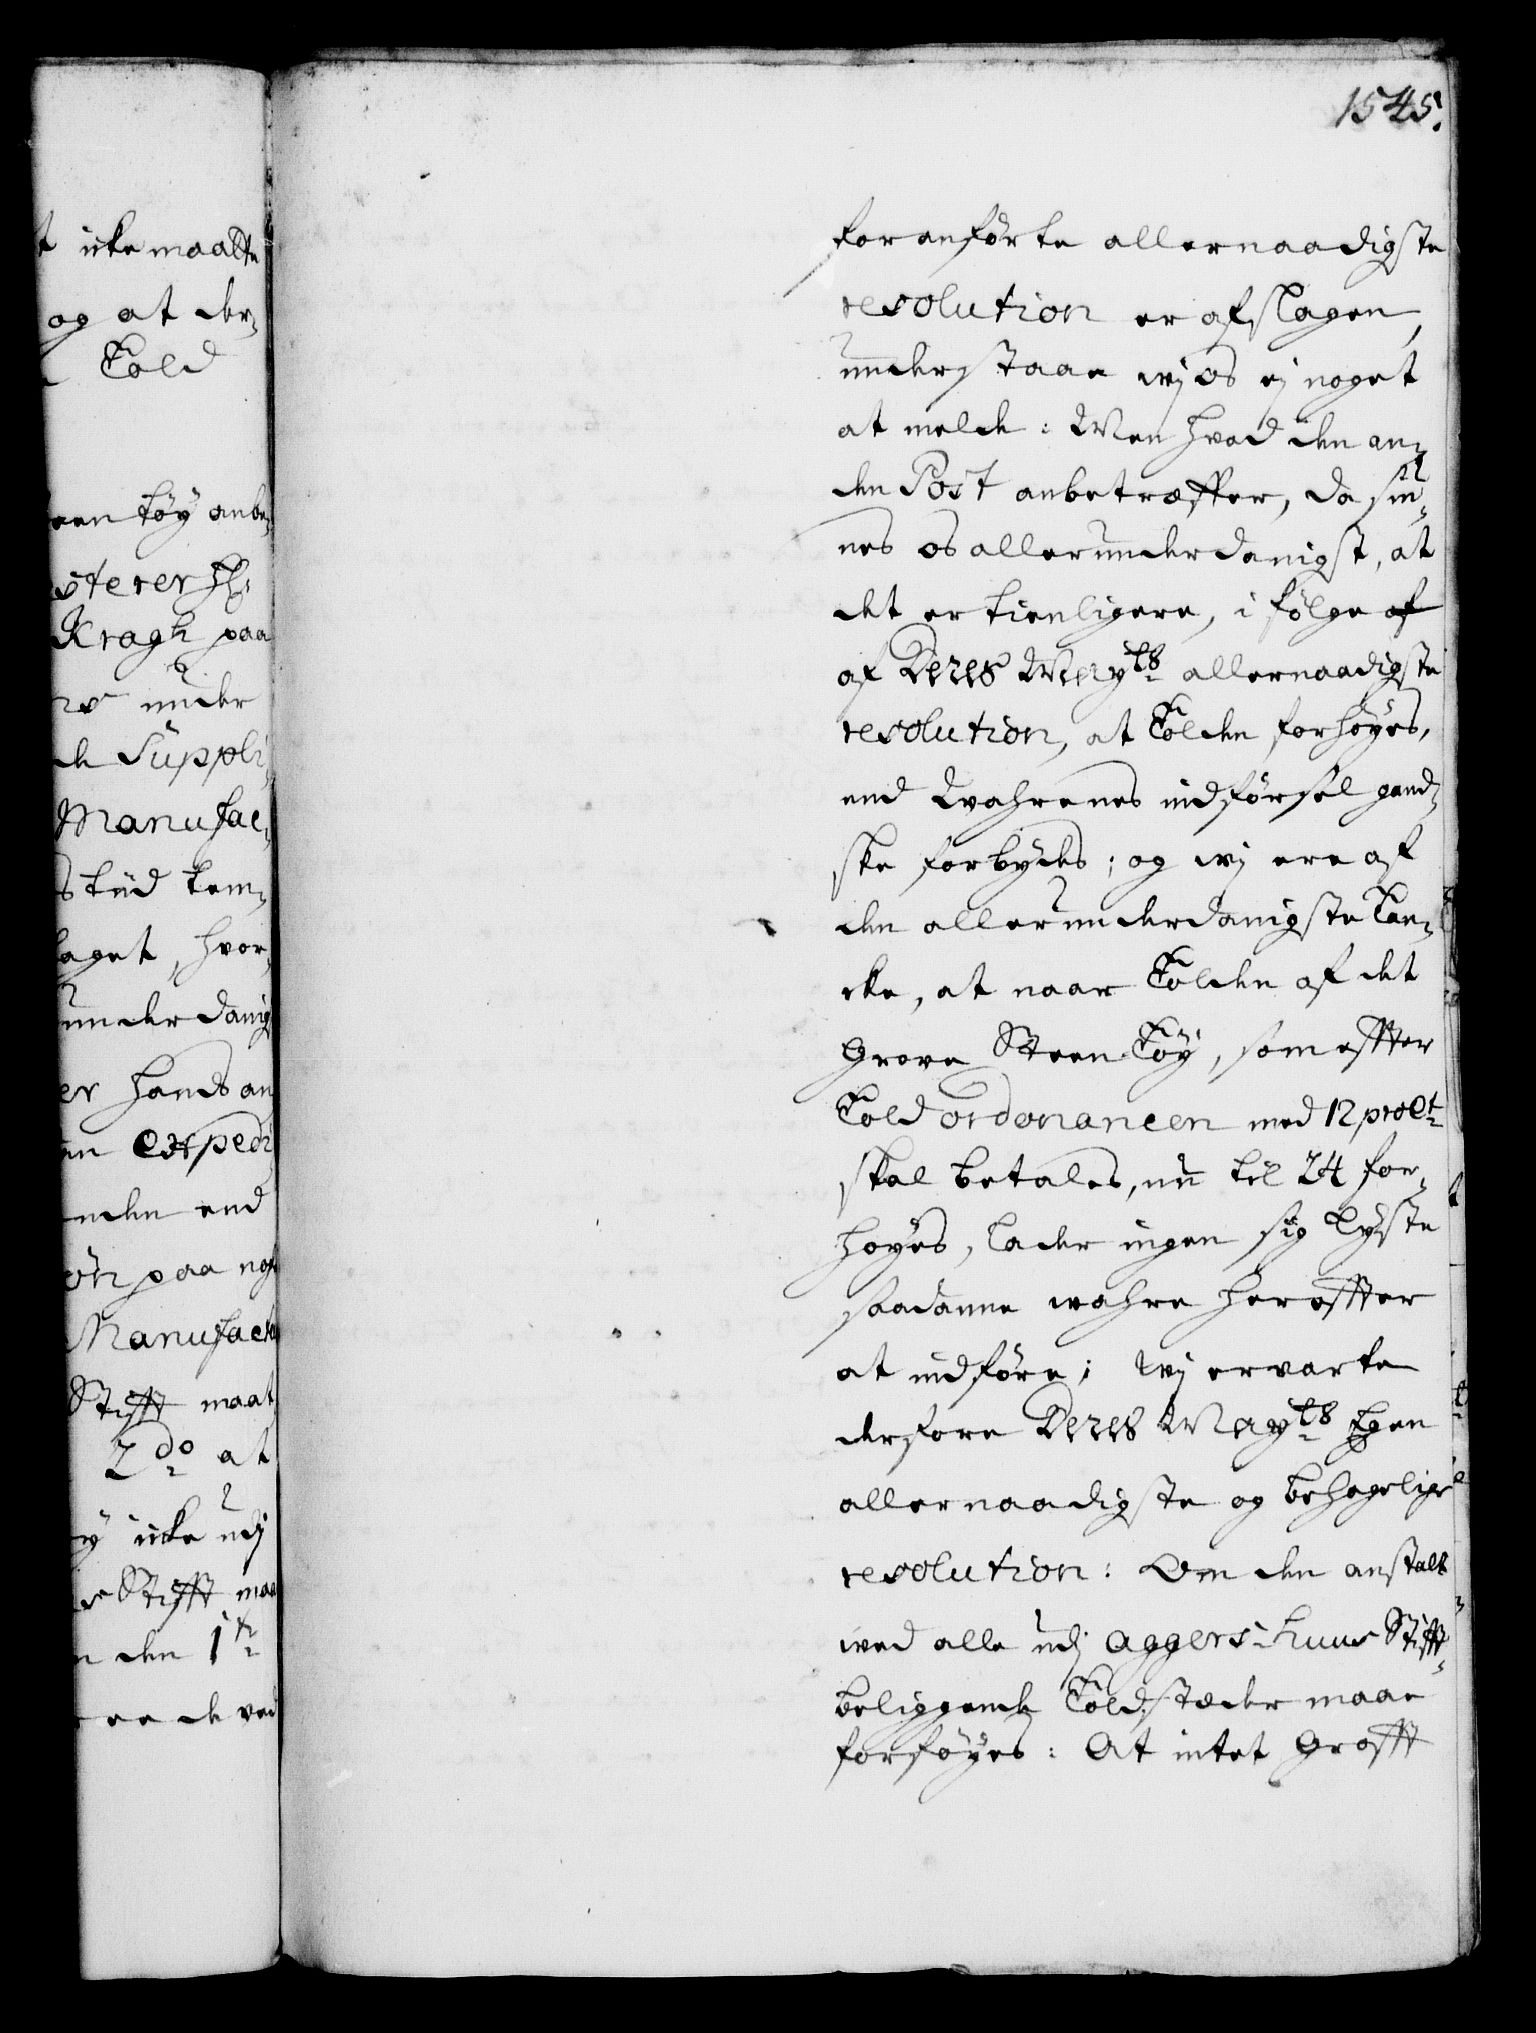 1545.
t icke maatte
og at der-
Told
een töy anbe-
sterer H:
Kragh paa
under
de Suppli-
Manufac-
stüd kem-
laget, hvor-
underdanig
er hands an
en Expedi
nden end
ön paa nog
Manufact
Stifft maat
2do at
y icke udj
Stifft maa
den 1te
de ved
foranförte allernaadigste
resolution er afslagen,
understaae wj os ej noget
at melde: Men hvad den an-
den Post anbetræffer, da sÿ-
nes os allerunderdanigst, at
det er tienligere, i fölge af
af Deres Mayts allernaadigste
resolution, at Tolden forhöyes,
end Wahrenes indförsel gand-
ske forbydes; og wj ere af
den allerunderdanigste Tan-
cke, at naar Tolden af det
Grove Steen Töy, som effter
Told ordonancen med 12 proCt
skal betales, nu til 24 for-
hoyes, lader ingen sig lyste
saadanne wahre hereffter
at indföre; Wj ervarte
derfore Deres Mayts Egen
allernaadigste og behagelige
resolution: Om den anstalt
wed alle udj Aggers-huus Stifft
beliggende Toldstæder maae
forföyes: At intet Grofft